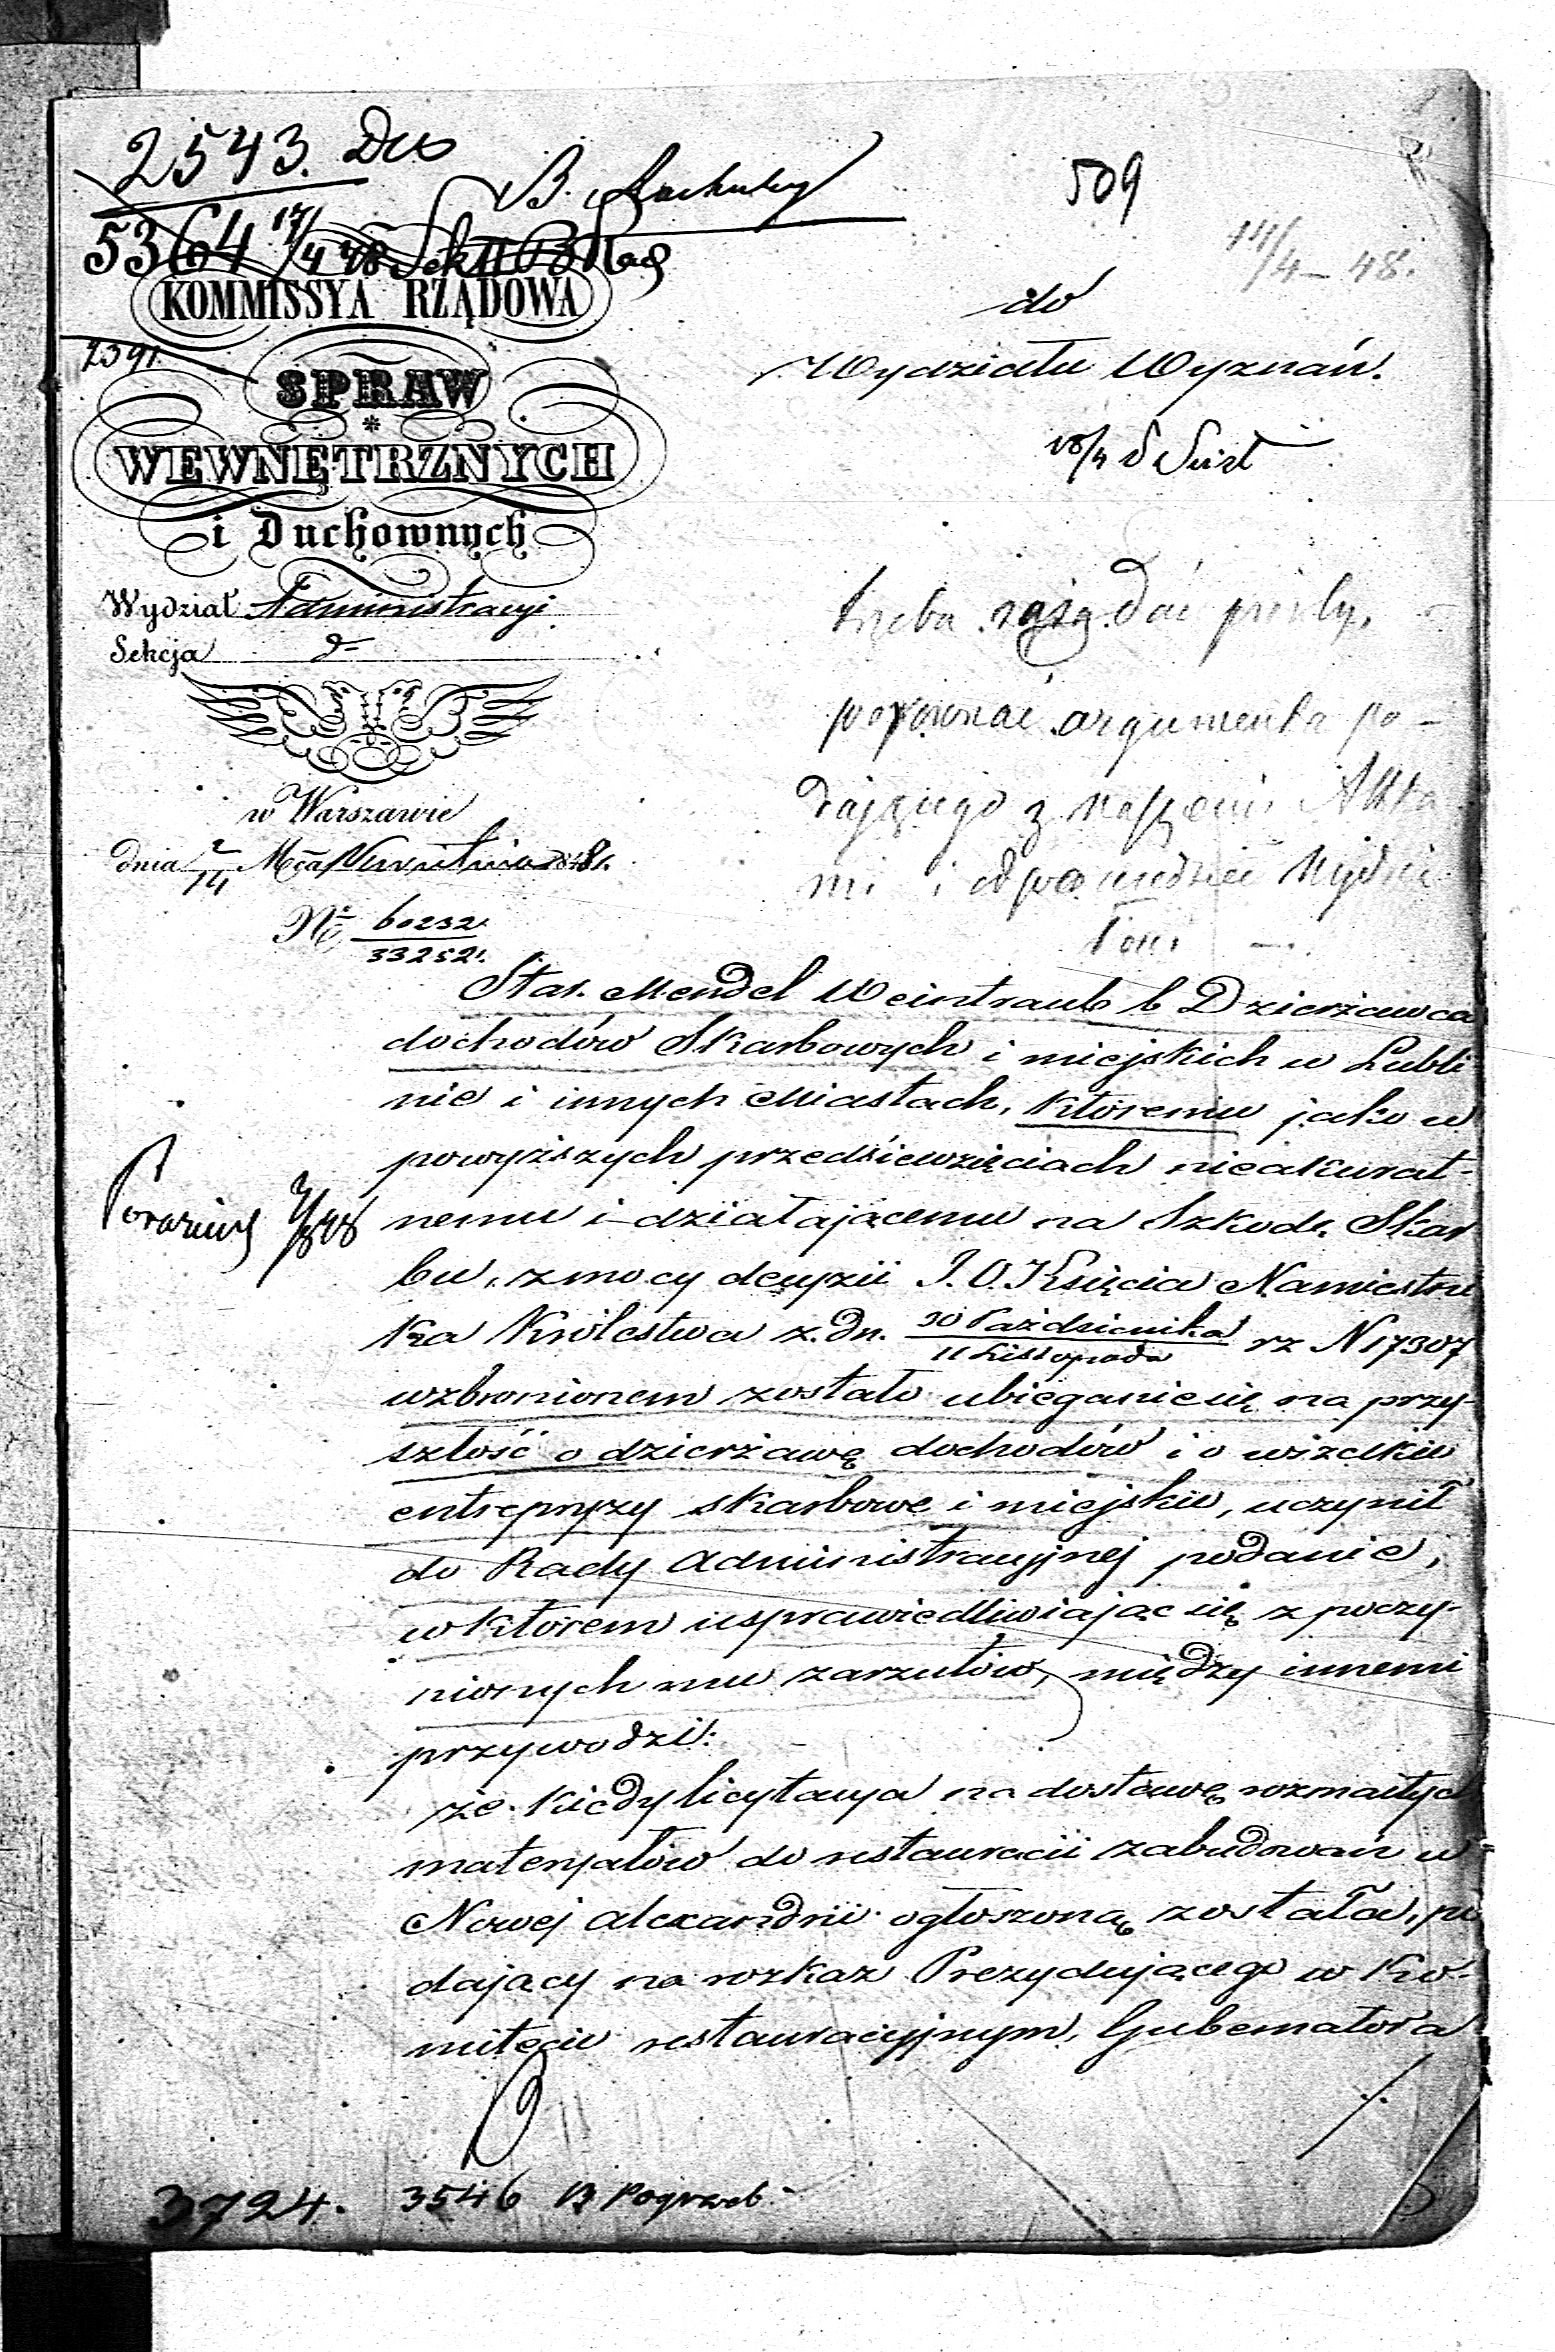 2543. Duo
509
5364 17/4 48 Sek II B
14/4 – 48.
KOMMISSYA RZĄDOWA
2391
SPRAW
WEWNĘTRZNYCH
i Duchownych
do
Wydziału Wyznań.
18/4
Wydział Administracyi
Sekcja
w Warszawie
dnia 2/14 Mca Kwietnia 1848 r.
No 60232
33252
trzeba zażądać
porównać argumenta po-
dającego z naszemi Akta
mi i odpowiedzieć Wydzia
łowi
Star. Mendel Weintraub b Dzierżawca
dochodów Skarbowych i miejskich w Lubli
nie i innych Miastach, któremu jako w
powyższych przedsięwzięciach nieakurat-
nemu i działającemu na Szkodę Skar
bu, z mocy decyzii J. O. Księcia Namiestni
ka Królestwa z dn. 30 Października
11 Listopada rz N 17307
wzbronionem zostało ubieganie się na przy-
szłość o dzierżawę dochodów i o wszelkie
entrepryzy skarbowe i miejskie, uczynił
do Rady Administracyjnej podanie,
w którem usprawiedliwiając się z poczy-
nionych mu zarzutów, między innemi
przywodzi:
że kiedy licytacya na dostawę rozmaityc
materyałów do restauracii zabudowań w
Nowej Alexandrii ogłoszoną została, po
dający na rozkaz Prezydującego w Ko-
mitecie restauracyjnym, Gubernatora
3724.
3546 B Pogrzeb